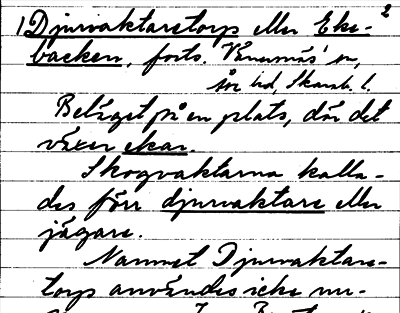 2
1) Djurvaktaretorp eller Eke-
backen, forts. Vänersnäs' sn,
Åse hd, Skarab. l.
Beläget på en plats, där det
växer ekar.
Skogvaktarna kalla-
des förr djurvaktare eller
jägare.
Namnet Djurvaktare-
torp användes icke nu-